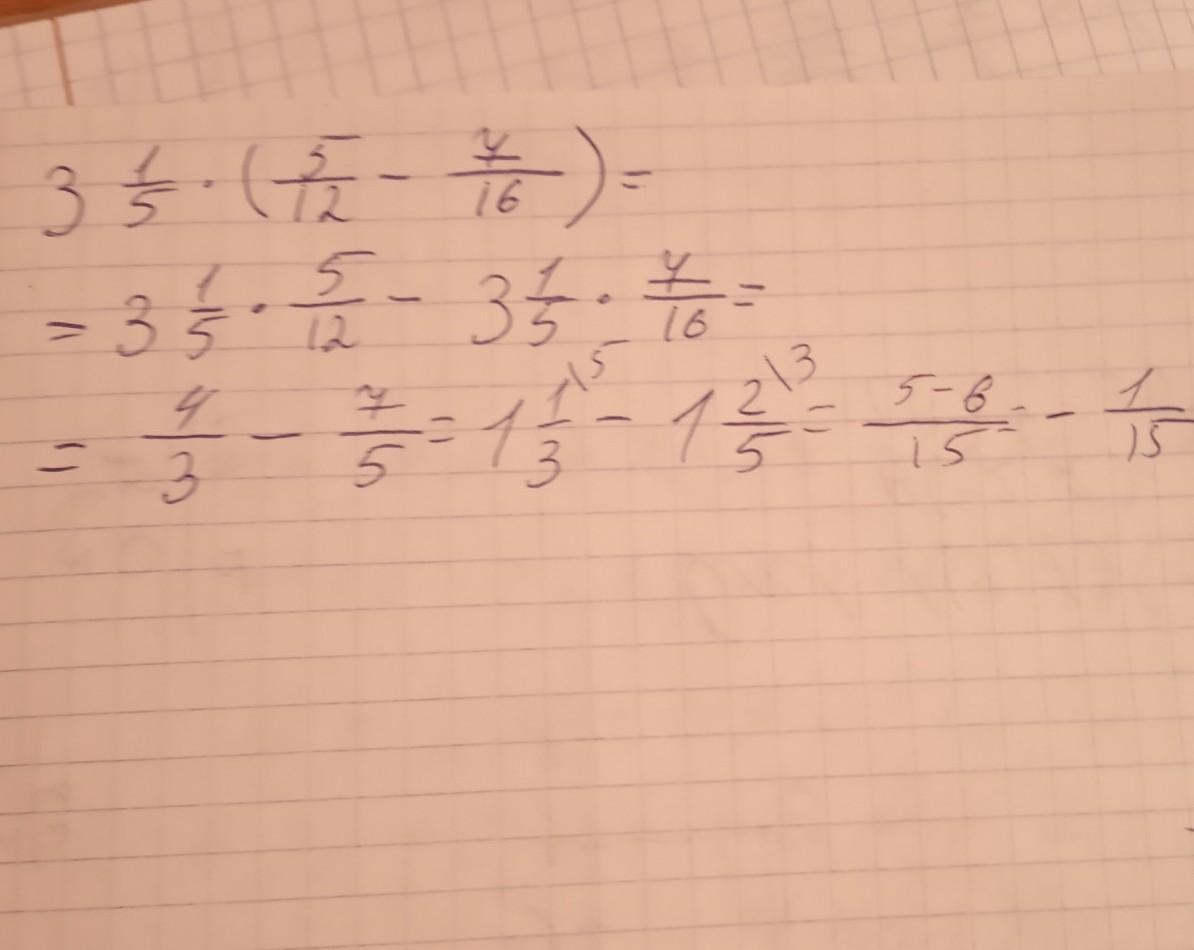 3 1/5 · (5/12 - 7/16) =
= 3 1/5 · 5/12 - 3 1/5 · 7/16 =
= 4/3 - 7/5 = 1 1/3 \5 - 1 2/5 \3 = 5-6/15 = - 1/15